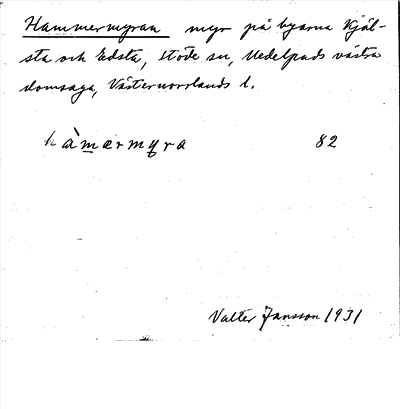 Hammermyran myr på byarna Kjäl-
sta och Edsta, Stöde sn, Medelpads västra
domsaga, Västernorrlands l.
hàmærmyra 82
Valter Jansson 1931